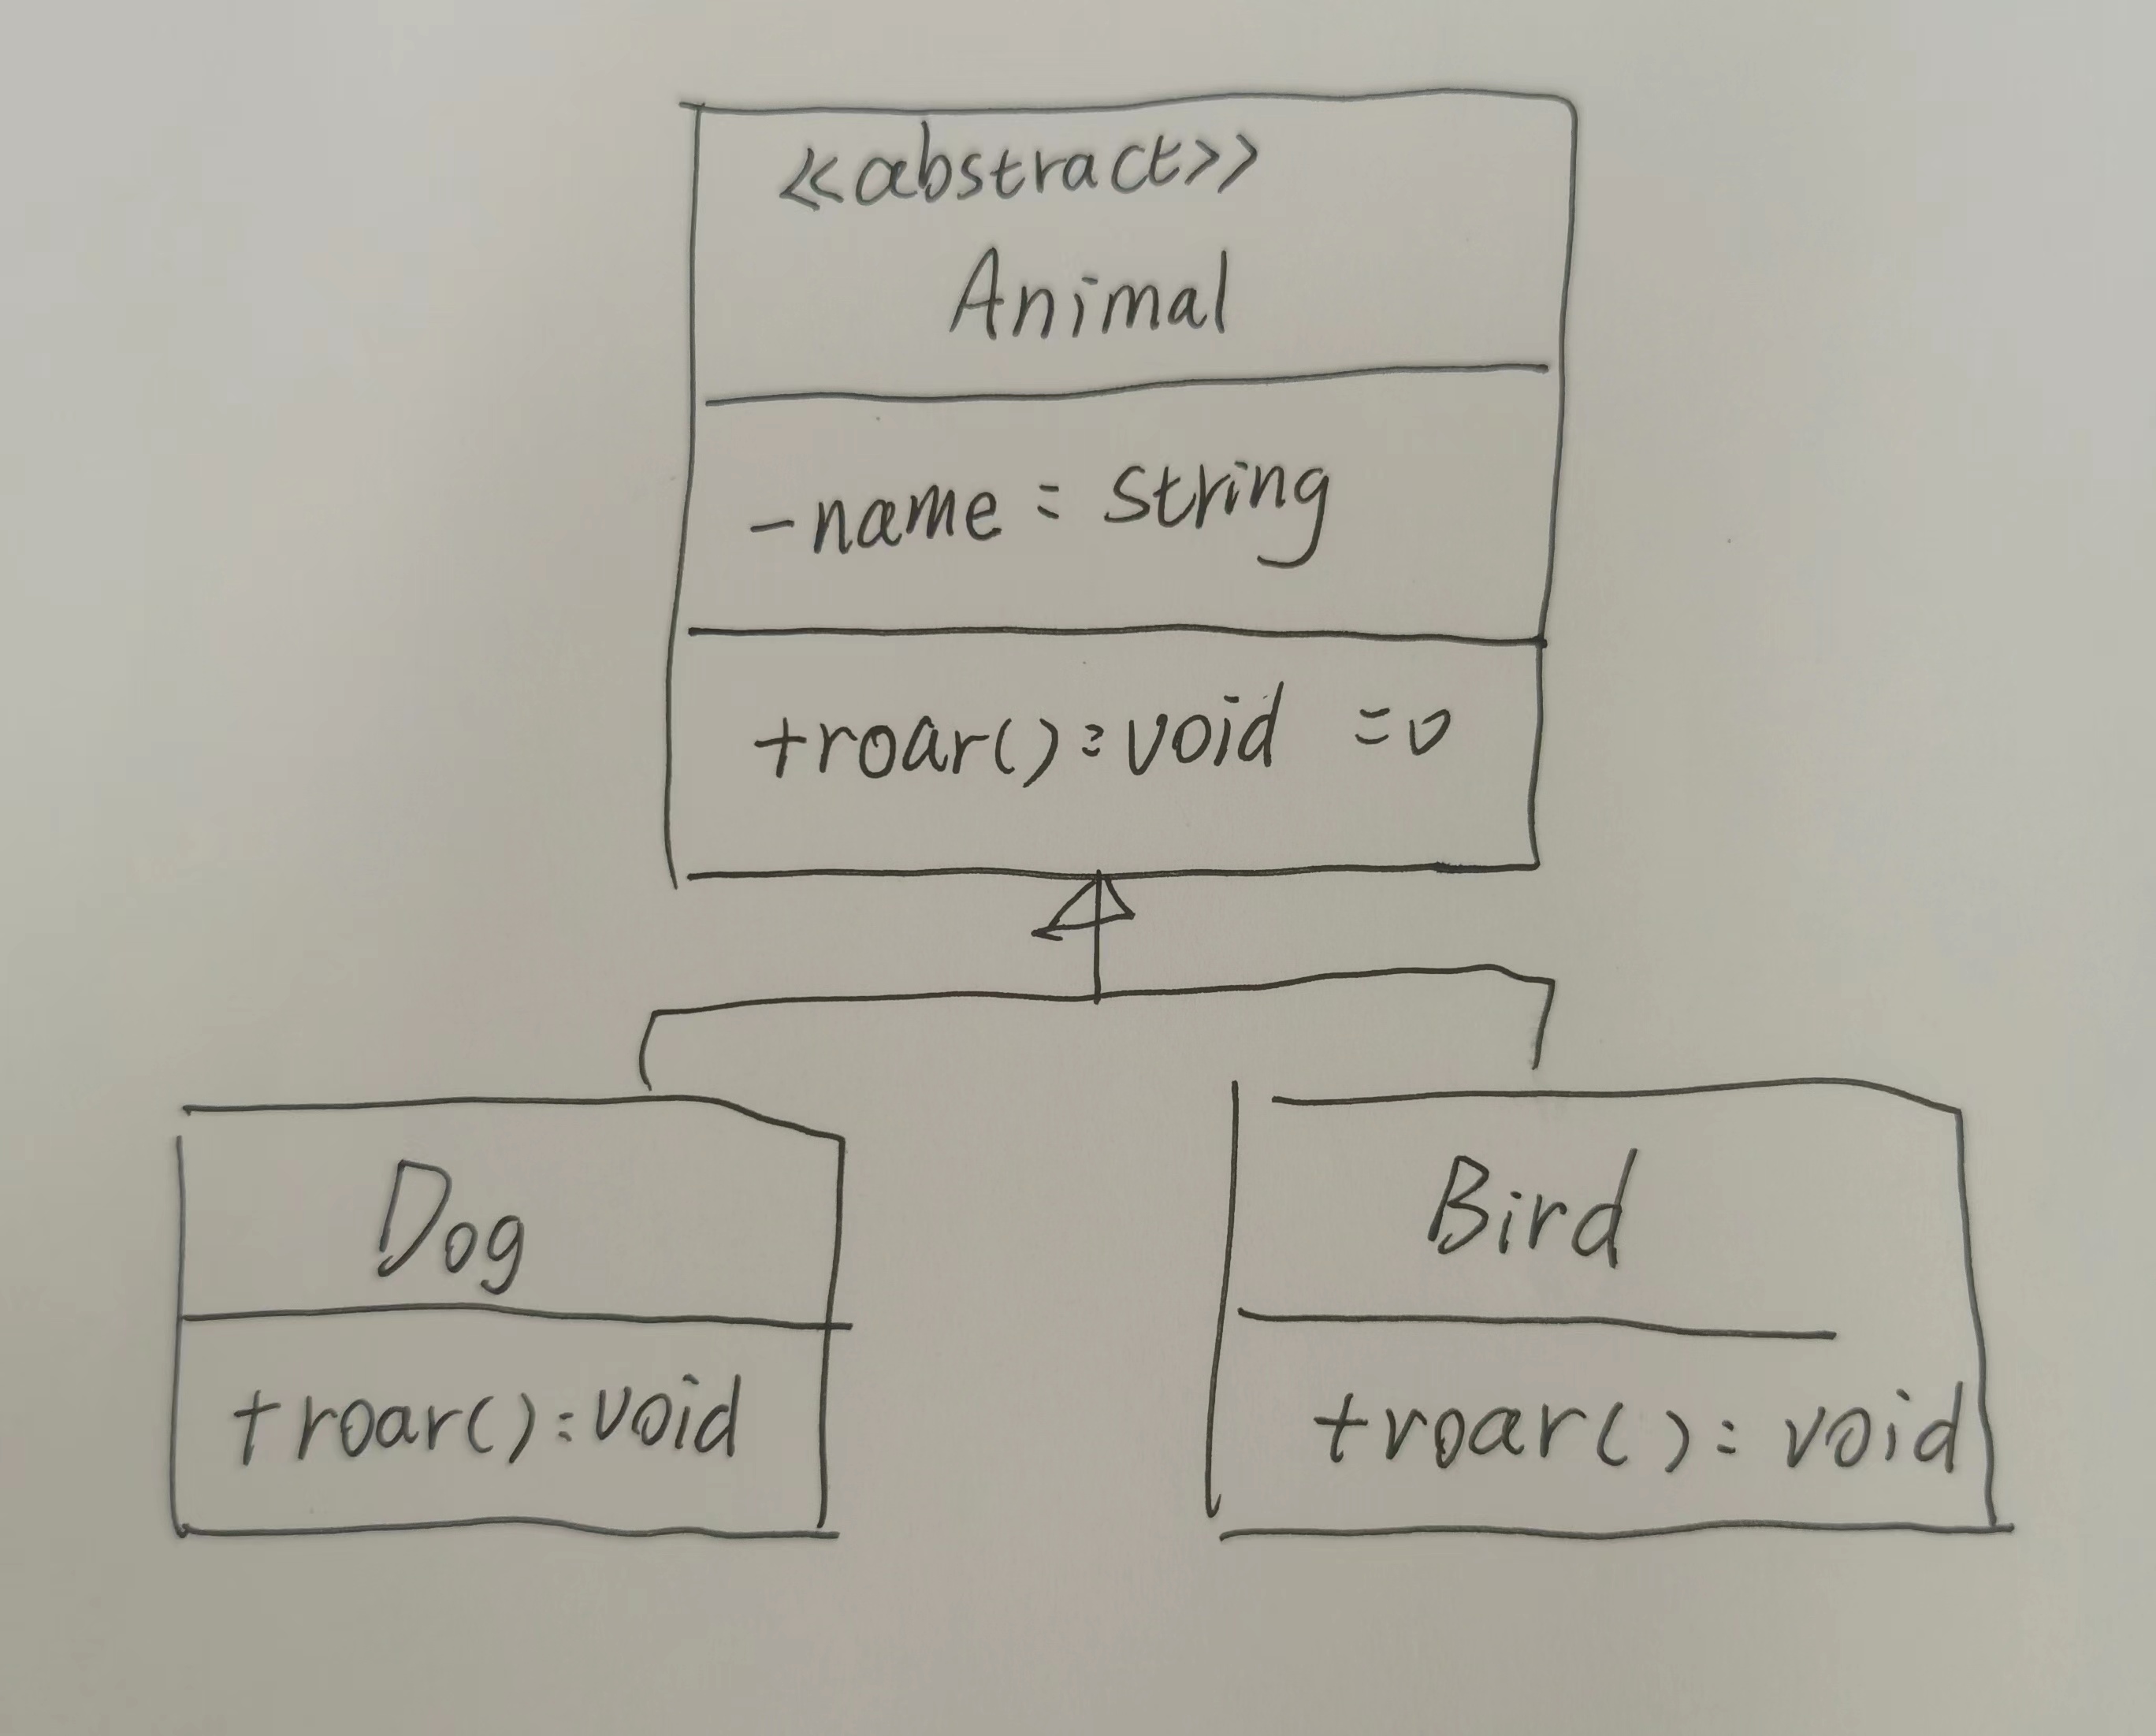 <<abstract>>
Animal
-name : string
+roar() : void =0
Dog
+roar() : void
Bird
+roar() : void